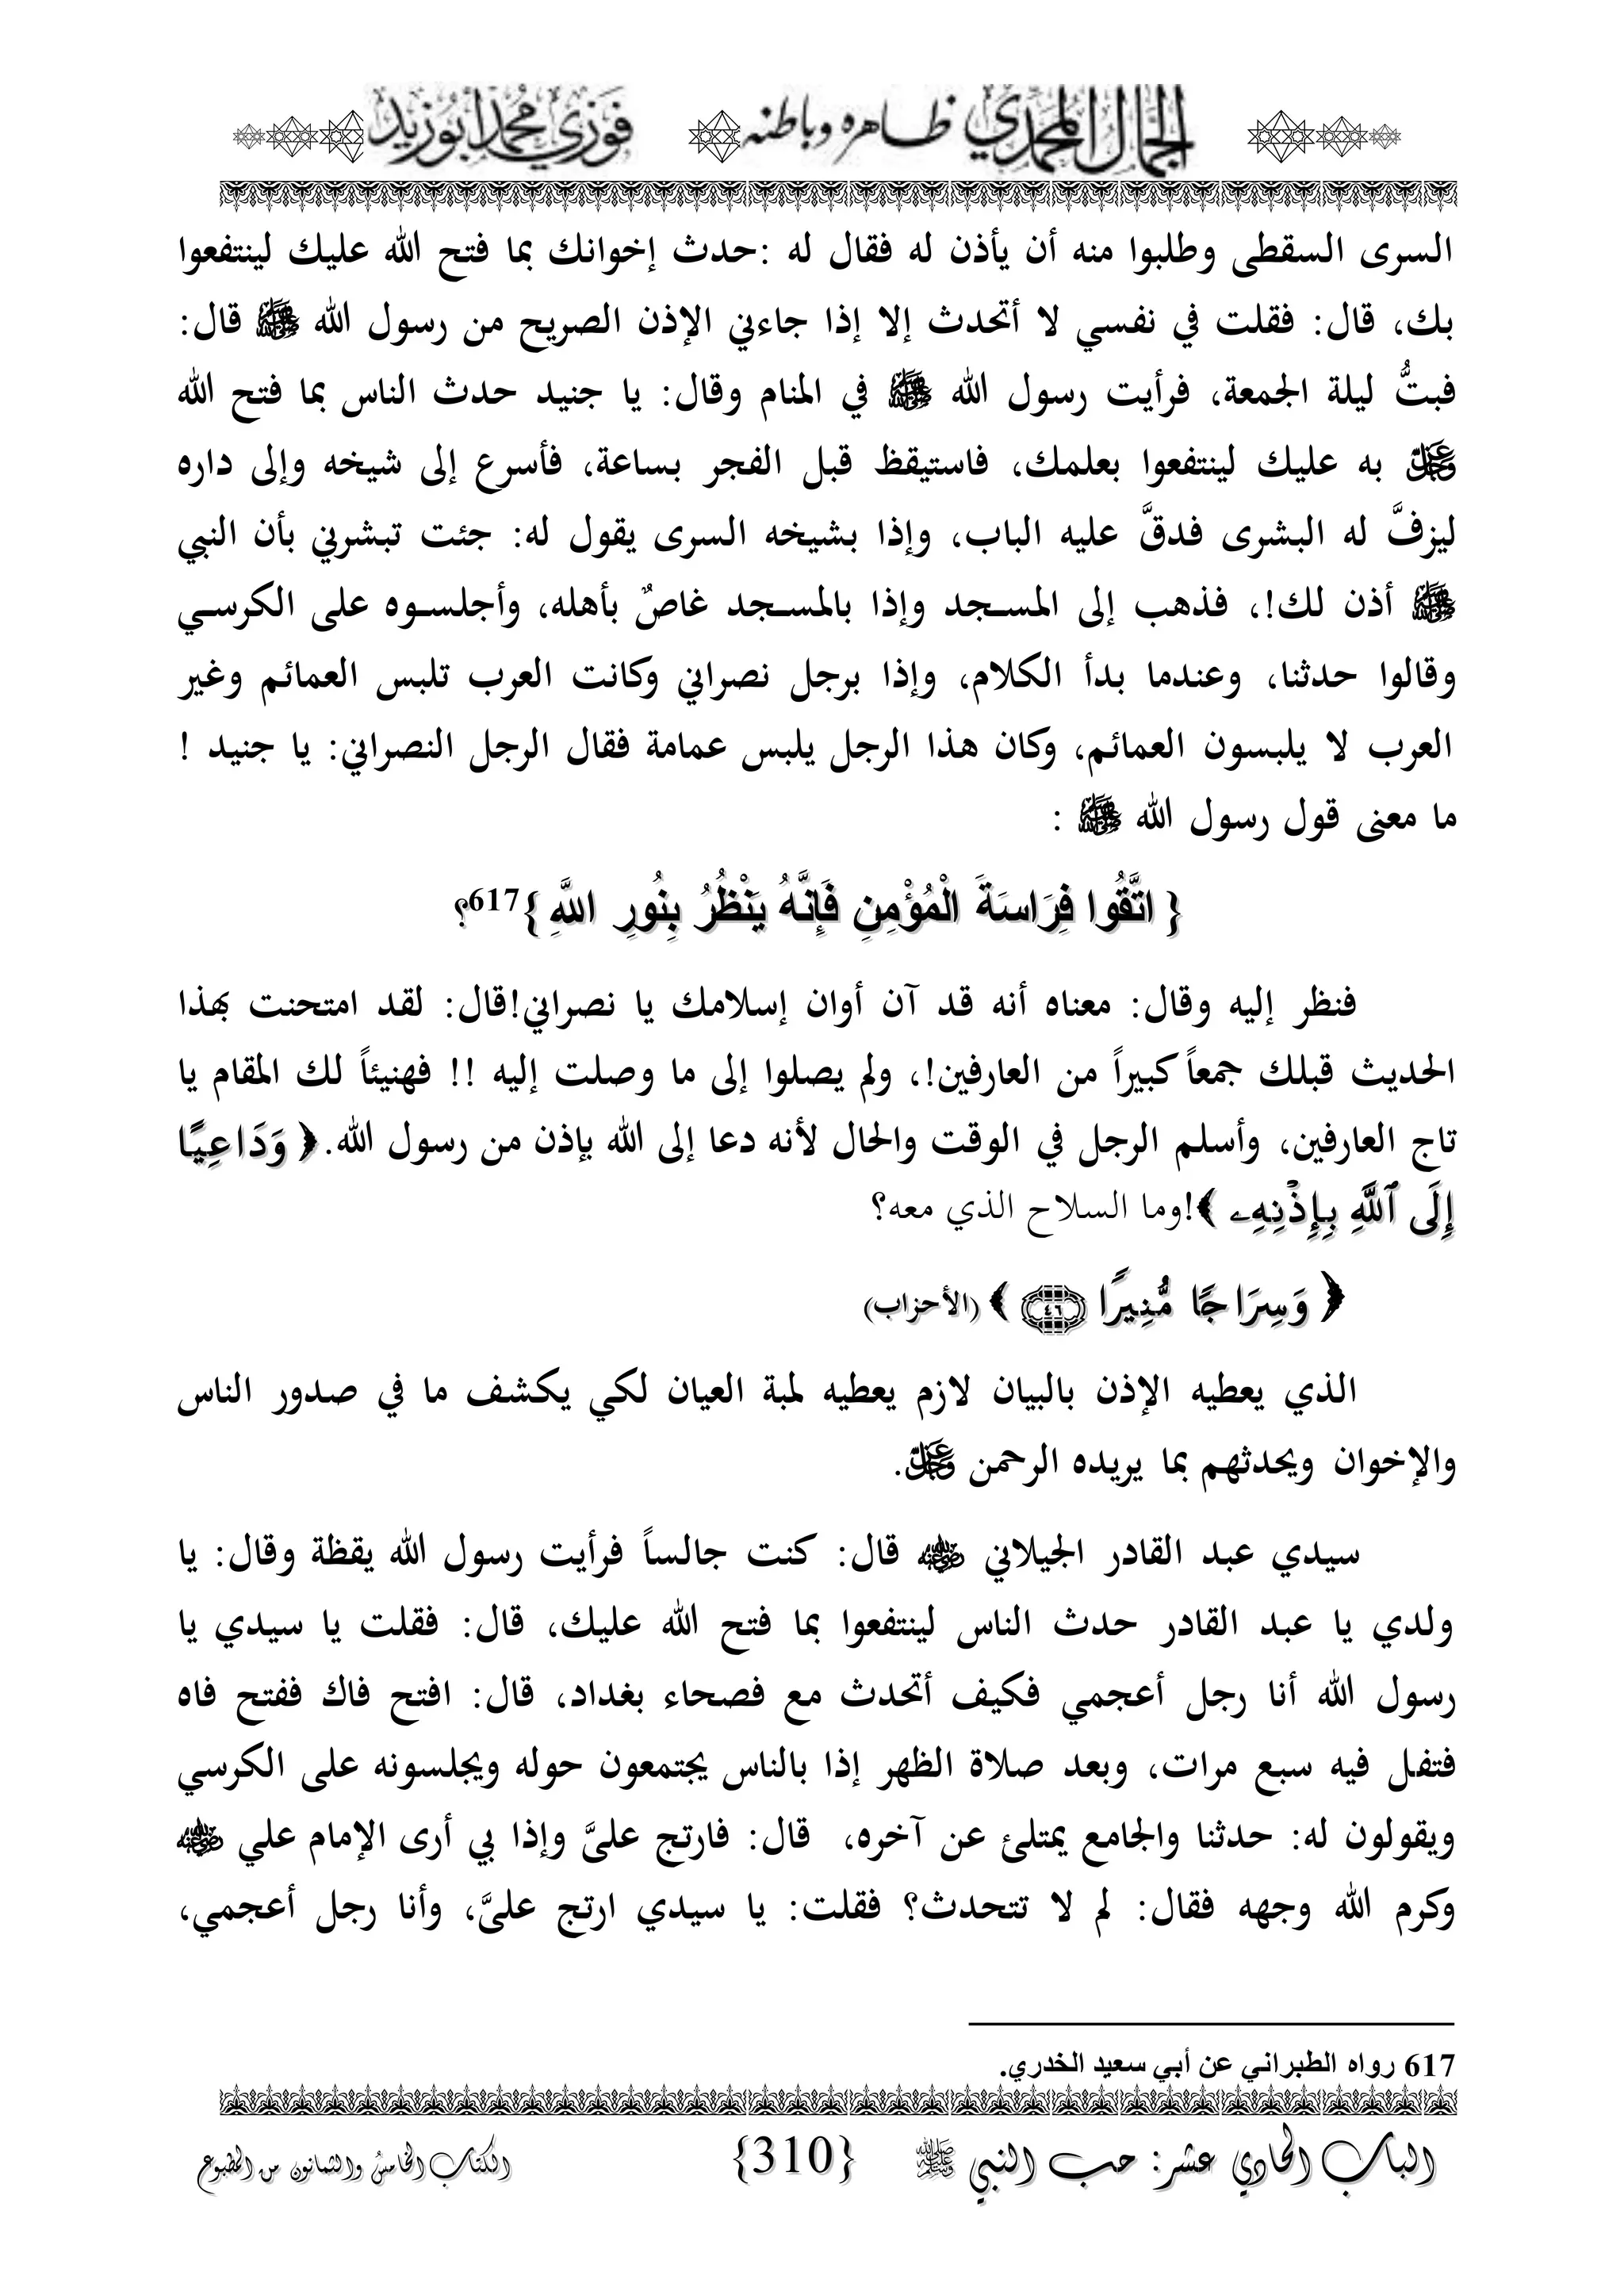 الجمال المحمدي ظاهره وباطنه فوزي محمد أبوزيد
السرى السقطى وطلبوا منه أن يأذن له فقال له :حدث إخوانك بما فتح الله عليك لينتفعوا
بك، قال: فقلت في نفسي لا أتحدث إلا إذا جاءني الإذن الصريح من رسول الله ﷺ قال:
فبتُّ ليلة الجمعة، فرأيت رسول الله ﷺ في المنام وقال: يا جنيد حدث الناس بما فتح الله
عز وجل به عليك لينتفعوا بعلمك، فاستيقظ قبل الفجر بساعة، فأسرع إلى شيخه وإلى داره
ليزفَّ له البشرى فدقَّ عليه الباب، وإذا بشيخه السرى يقول له: جئت تبشرني بأن النبي
ﷺ أذن لك!، فذهب إلى المسجد وإذا بالمسجد غاصٌ بأهله، وأجلسوه على الكرسي
وقالوا حدثنا، وعندما بدأ الكلام، وإذا برجل نصراني وكانت العرب تلبس العمائم وغير
العرب لا يلبسون العمائم، وكان هذا الرجل يلبس عمامة فقال الرجل النصراني: يا جنيد !
ما معنى قول رسول الله ﷺ :
{ اتَّقُوا فِرَاسَةَ الْمُؤْمِنِ فَإِنَّهُ يَنْظُرُ بِنُورِ اللَّهِ }617؟
فنظر إليه وقال: معناه أنه قد آن أوان إسلامك يا نصراني!قال: لقد امتحنت بهذا
الحديث قبلك جمعاً كبيراً من العارفين!، ولم يصلوا إلى ما وصلت إليه !! فهنيئاً لك المقام يا
تاج العارفين، وأسلم الرجل في الوقت والحال لأنه دعا إلى الله بإذن من رسول الله.﴿ وَدَاعِيًا
إِلَى ٱللَّهِ بِإِذْنِهِۦ ﴾!وما السلاح الذي معه؟
﴿ وَسِرَاجًا مُّنِيرًا ٤٦ ﴾ (الأحزاب)
الذي يعطيه الإذن بالبيان لازم يعطيه لمبة العيان لكي يكشف ما في صدور الناس
والإخوان ويحدثهم بما يريده الرحمن عز وجل.
سيدي عبد القادر الجيلاني رضي الله عنه قال: كنت جالساً فرأيت رسول الله يقظة وقال: يا
ولدي يا عبد القادر حدث الناس لينتفعوا بما فتح الله عليك، قال: فقلت يا سيدي يا
رسول الله أنا رجل أعجمي فكيف أتحدث مع فصحاء بغداد، قال: افتح فاك ففتح فاه
فتفل فيه سبع مرات، وبعد صلاة الظهر إذا بالناس يجتمعون حوله ويجلسونه على الكرسي
ويقولون له: حدثنا والجامع يمتلئ عن آخره، قال: فارتج علىَّ وإذا بي أرى الإمام علي رضي الله عنه
وكرم الله وجهه فقال: لم لا تتحدث؟ فقلت: يا سيدي ارتج علىَّ، وأنا رجل أعجمي،
617 رواه الطبراني عن أبي سعيد الخدري.
الباب الحادي عشر: حب النبي ﷺ {310} الكتاب الخامس والثمانون من المطبوع